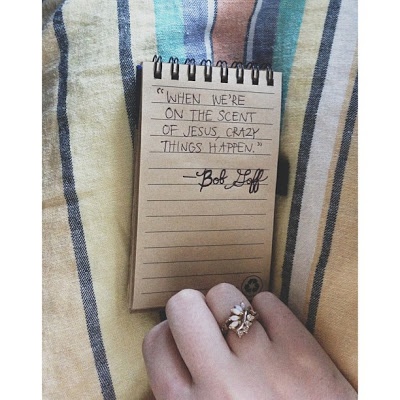 "WHEN WE'RE
ON THE SCENT
OF JESUS, CRAZY
THINGS HAPPEN."
—Bob Goff